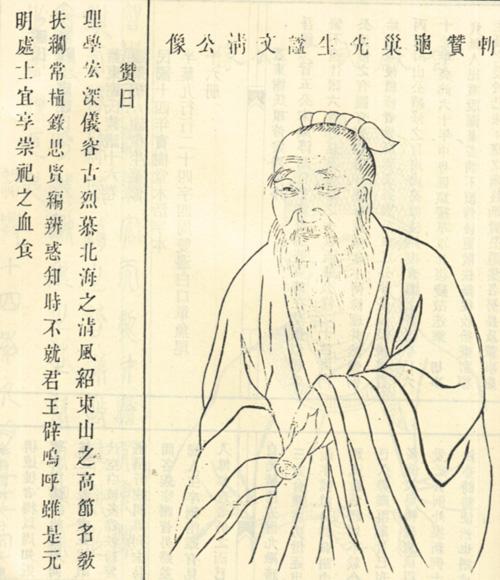 勅贊龜巢先生諡文清公像
贊曰
理學宏深儀容古烈慕北海之清風紹東山之高節名教
扶綱常植錄思賢編辨惑知時不就君王辟嗚呼雖是元
明處士宜享崇祀之血食